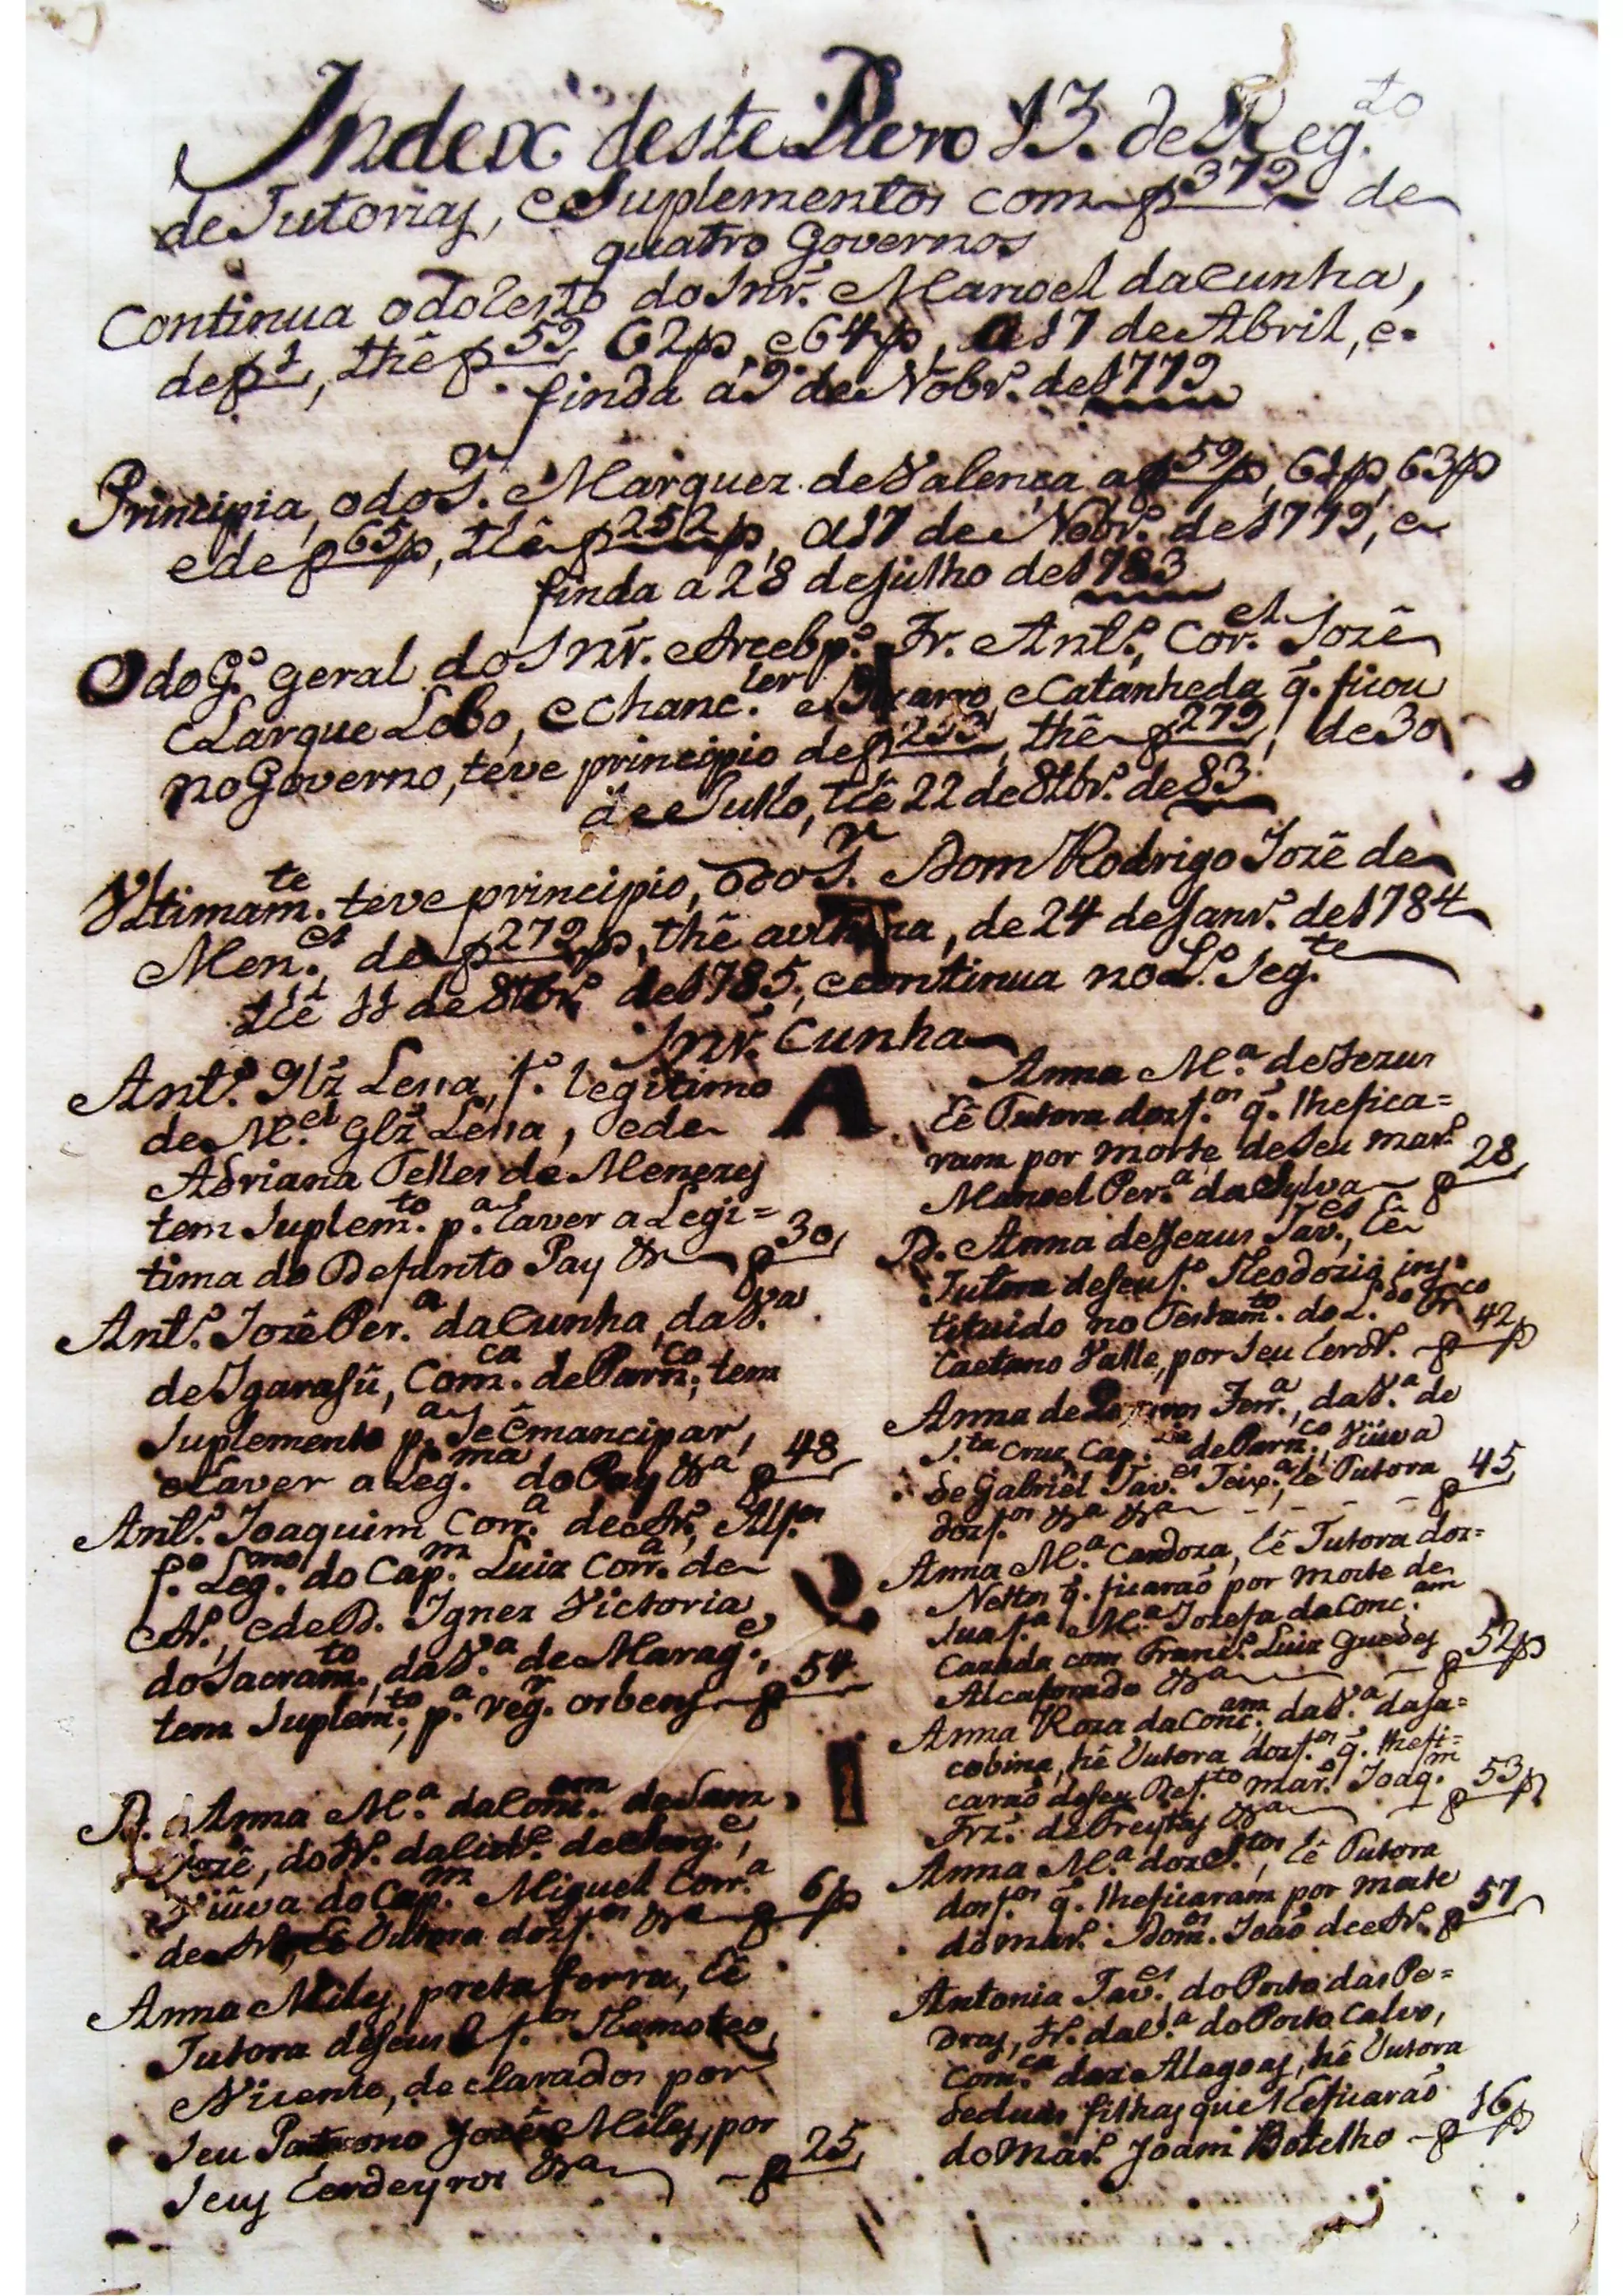 Index deste Livro 13. de Reg.to
de Tutorias, e Suplementos com f 379 de
quatro Governos
Continua o do Cen.to do Snr. Manoel da Cunha,
de f 1, thê f 59 62p, e 64p, a 17 de Abril, e
finda a 9 de Nobr.o de 1779
Principia, o do S.r Marquez de Valença a f 59p, 61p, 63p
e de f 65p, thê f 252p, a 17 de Nobr.o de 1779, e
finda a 28 de Julho de 1783
O do G.o geral do Snr. Arcebp.o Fr. Ant.o, Cor.el Jozê
Clarque Lobo, e Chanc.ler e Catanheda q. ficou
no Governo, teve principio de f 253, thê f 279, de 30
de Julho, thê 22 de 8tbr.o de 83
Ultimam.te teve principio, o do S.r Dom Rodrigo Jozê de
Men.es de f 279p, thê a ultima, de 24 de Janr.o de 1784
thê 11 de 8tbr.o de 1785, e continua no L.o seg.te
Snr. Cunha
A
Ant.o Glz Lessa, f.o legitimo
de M.el Glz Lessa, e de
Adriana Telles de Menezes
tem Suplem.to p.a haver a Legi=
tima do Defunto Pay &a f 30
Ant.o Jozê Per.a da Cunha, da V.a
de Igarasû, Com.ca de Parn.co, tem
Suplemento p.a Se êmancipar,
e haver a Leg.ma do Pay &a f 48
Ant.o Joaquim Corr.a de Ar.o, Alf.es
f.o Leg.mo do Cap.m Luiz Corr.a de
Ar.o, e de D. Ignez Victoria
do Sacram.to, da V.a de Marag.e,
tem Suplem.to, p.a reg.r os bens f 54
D. Anna M.a da Conc.am de Sam
Jozê, do tr.o da Cid.e de Serg.e,
Viûva do Cap.m Miguel Corr.a
de Ar.o, hê Tutora dos f.os &a f 6p
Anna Miles, preta forra, hê
Tutora de Seus 2 f.os Themoteo,
Vicente, declarados por
Seu Patrono Jozê Miles, por
Seus Erdeyros &a f 25
Anna M.a de Jezus
hê Tutora dos f.os q. lhe fica=
ram por morte de Seu mar.o
Manoel Per.a da Sylva f 28
D. Anna de Jezus Tav.es, hê
Tutora de Seu f.o Theodozio ins
tituido no Testam.to do L.do Fr.co
Caetano Valle, por Seu Erdr.o f 42p
Anna de Ferr.a, da V.a de
S.ta Cruz, Cap.nia de Parn.co, Viûva
de Gabriel Tav.es Teix.a, hê Tutora
dos f.os &a &a f 45
Anna M.a Cardoza, hê Tutora dos=
Nettos q. ficaraõ por morte de
Sua f.a M.a Jozefa da Conc.am
Cazada com Franc.o Luiz Guedes
Alcaforado &a f 52p
Anna Roza da Conc.am, da V.a da Ja=
cobina, hê Tutora dos f.os q. lhe fi=
caraõ de Seu Def.to mar.o Joaq.m
Frz. de Freytas &a f 53p
Anna M.a dos S.tos, hê Tutora
dos f.os q. lhe ficaram por morte
do mar.o Dom.os Joaõ de Ar.o f 57
Antonia Tav.es, do Porto das Pe=
dras, tr.o da V.a do Porto Calvo,
Com.ca das Alagoas, hê Tutora
de duas filhas que lhe ficaraõ
do Mar.o Joam Botelho f 16p